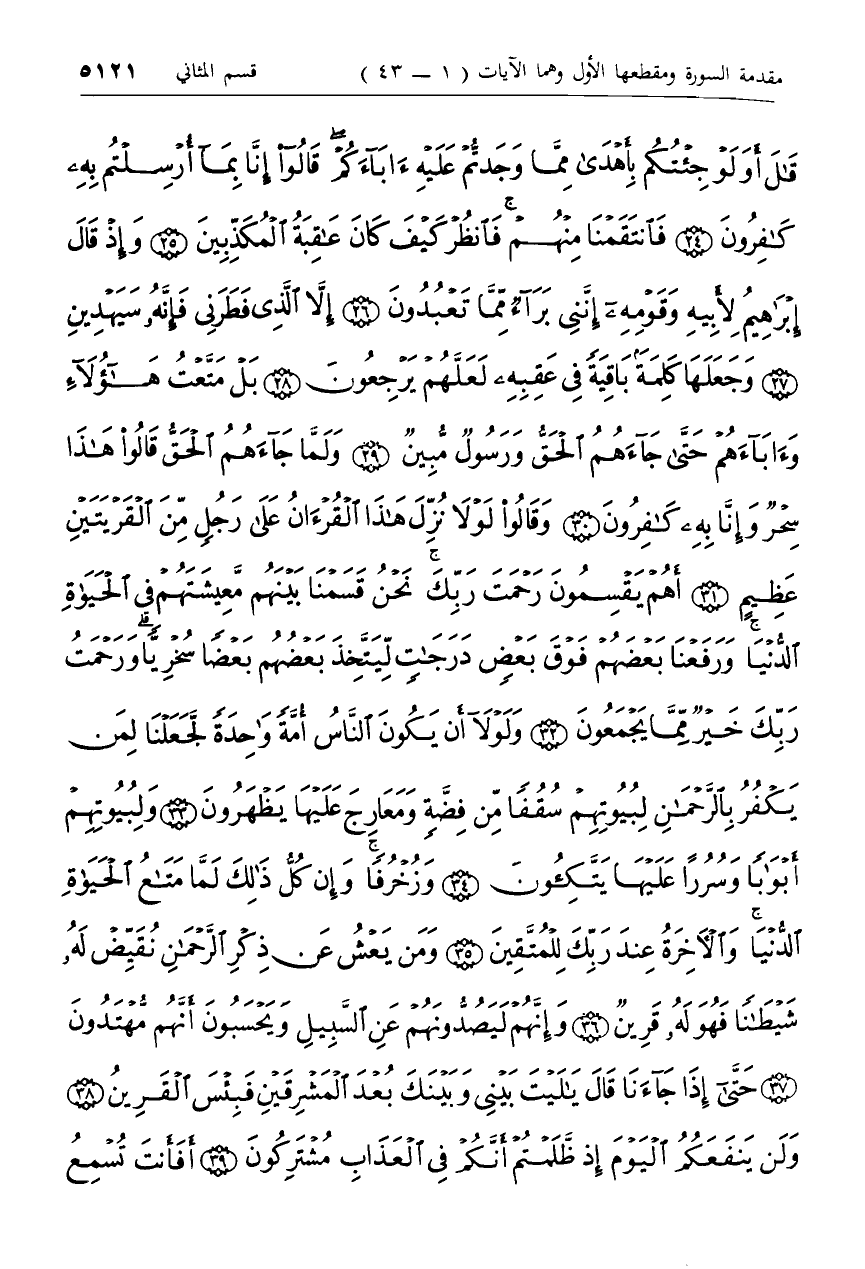 مقدمة السورة ومقطعها الأول وهما الآيات ( ١ — ٤٣ ) قسم المثاني ٥١٢١
قَٰلَ أَوَلَوْ جِئْتُكُم بِأَهْدَىٰ مِمَّا وَجَدتُّمْ عَلَيْهِ ءَابَآءَكُمْ ۖ قَالُوٓا۟ إِنَّا بِمَآ أُرْسِلْتُم بِهِۦ
كَٰفِرُونَ ﴿٢٤﴾ فَٱنتَقَمْنَا مِنْهُمْ ۚ فَٱنظُرْ كَيْفَ كَانَ عَٰقِبَةُ ٱلْمُكَذِّبِينَ ﴿٢٥﴾ وَإِذْ قَالَ
إِبْرَٰهِيمُ لِأَبِيهِ وَقَوْمِهِۦٓ إِنَّنِى بَرَآءٌ مِّمَّا تَعْبُدُونَ ﴿٢٦﴾ إِلَّا ٱلَّذِى فَطَرَنِى فَإِنَّهُۥ سَيَهْدِينِ
﴿٢٧﴾ وَجَعَلَهَا كَلِمَةًۢ بَاقِيَةً فِى عَقِبِهِۦ لَعَلَّهُمْ يَرْجِعُونَ ﴿٢٨﴾ بَلْ مَتَّعْتُ هَٰٓؤُلَآءِ
وَءَابَآءَهُمْ حَتَّىٰ جَآءَهُمُ ٱلْحَقُّ وَرَسُولٌ مُّبِينٌ ﴿٢٩﴾ وَلَمَّا جَآءَهُمُ ٱلْحَقُّ قَالُوا۟ هَٰذَا
سِحْرٌ وَإِنَّا بِهِۦ كَٰفِرُونَ ﴿٣٠﴾ وَقَالُوا۟ لَوْلَا نُزِّلَ هَٰذَا ٱلْقُرْءَانُ عَلَىٰ رَجُلٍ مِّنَ ٱلْقَرْيَتَيْنِ
عَظِيمٍ ﴿٣١﴾ أَهُمْ يَقْسِمُونَ رَحْمَتَ رَبِّكَ ۚ نَحْنُ قَسَمْنَا بَيْنَهُم مَّعِيشَتَهُمْ فِى ٱلْحَيَوٰةِ
ٱلدُّنْيَا ۚ وَرَفَعْنَا بَعْضَهُمْ فَوْقَ بَعْضٍ دَرَجَٰتٍ لِّيَتَّخِذَ بَعْضُهُم بَعْضًا سُخْرِيًّا ۗ وَرَحْمَتُ
رَبِّكَ خَيْرٌ مِّمَّا يَجْمَعُونَ ﴿٣٢﴾ وَلَوْلَآ أَن يَكُونَ ٱلنَّاسُ أُمَّةً وَٰحِدَةً لَّجَعَلْنَا لِمَن
يَكْفُرُ بِٱلرَّحْمَٰنِ لِبُيُوتِهِمْ سُقُفًا مِّن فِضَّةٍ وَمَعَارِجَ عَلَيْهَا يَظْهَرُونَ ﴿٣٣﴾ وَلِبُيُوتِهِمْ
أَبْوَٰبًا وَسُرُرًا عَلَيْهَا يَتَّكِـُٔونَ ﴿٣٤﴾ وَزُخْرُفًا ۚ وَإِن كُلُّ ذَٰلِكَ لَمَّا مَتَٰعُ ٱلْحَيَوٰةِ
ٱلدُّنْيَا ۚ وَٱلْءَاخِرَةُ عِندَ رَبِّكَ لِلْمُتَّقِينَ ﴿٣٥﴾ وَمَن يَعْشُ عَن ذِكْرِ ٱلرَّحْمَٰنِ نُقَيِّضْ لَهُۥ
شَيْطَٰنًا فَهُوَ لَهُۥ قَرِينٌ ﴿٣٦﴾ وَإِنَّهُمْ لَيَصُدُّونَهُمْ عَنِ ٱلسَّبِيلِ وَيَحْسَبُونَ أَنَّهُم مُّهْتَدُونَ
﴿٣٧﴾ حَتَّىٰٓ إِذَا جَآءَنَا قَالَ يَٰلَيْتَ بَيْنِى وَبَيْنَكَ بُعْدَ ٱلْمَشْرِقَيْنِ فَبِئْسَ ٱلْقَرِينُ ﴿٣٨﴾
وَلَن يَنفَعَكُمُ ٱلْيَوْمَ إِذ ظَّلَمْتُمْ أَنَّكُمْ فِى ٱلْعَذَابِ مُشْتَرِكُونَ ﴿٣٩﴾ أَفَأَنتَ تُسْمِعُ